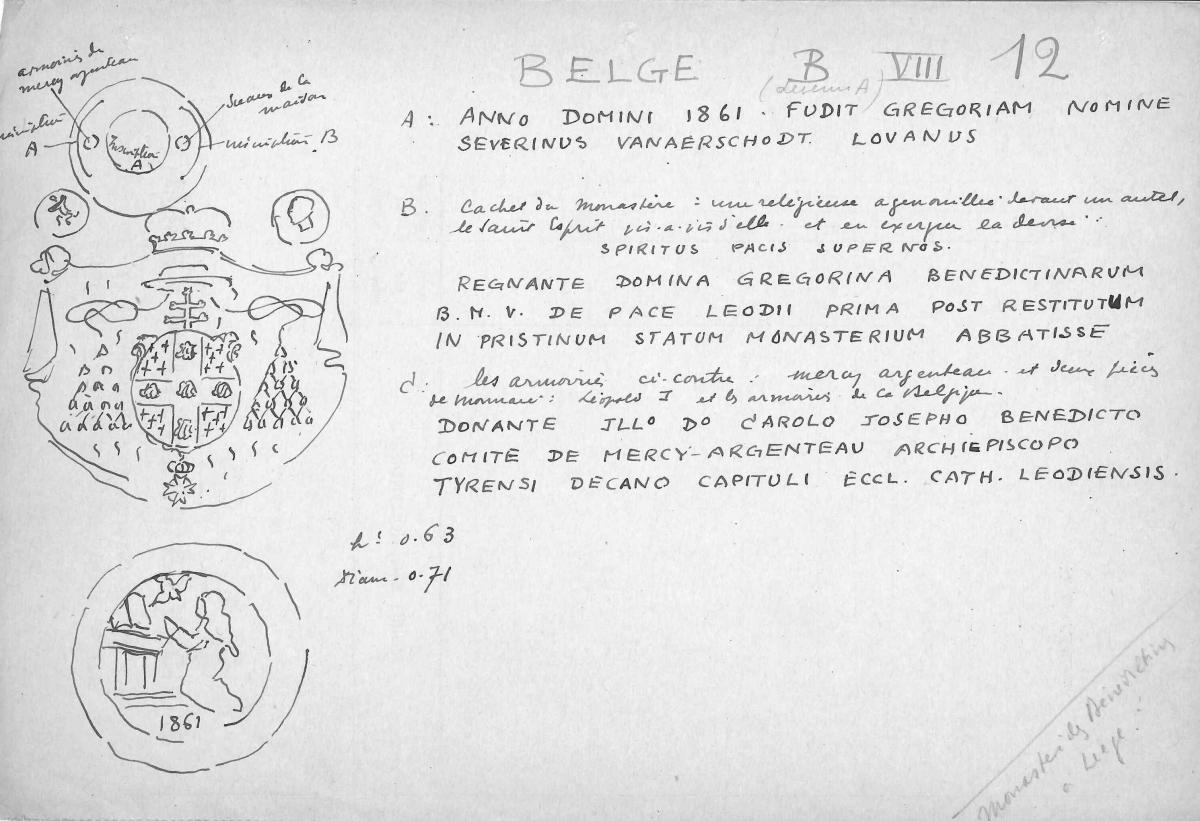 BELGE B VIII 12
armoiries de
mercy argenteau
Sceaux de la
maison
inscription
A
Inscription
A
inscription B
A : ANNO DOMINI 1861 . FUDIT GREGORIAM NOMINE
SEVERINUS VANAERSCHODT. LOVANUS
B. Cachet du Monastère : une religieuse agenouillée devant un autel,
le Saint Esprit vis-a-vis d'elle et en exergue la devise :
SPIRITUS PACIS SUPERNOS.
REGNANTE DOMINA GREGORINA BENEDICTINARUM
B. M. V. DE PACE LEODII PRIMA POST RESTITUTUM
IN PRISTINUM STATUM MONASTERIUM ABBATISSE
C : les armoiries ci-contre : mercy argenteau et deux pièces
de monnaie : Léopold I et les armoires de la Belgique.
DONANTE ILLO DO CAROLO JOSEPHO BENEDICTO
COMITE DE MERCY-ARGENTEAU ARCHIEPISCOPO
TYRENSI DECANO CAPITULI ECCL. CATH. LEODIENSIS.
hr 0.63
diam. 0.71
1861
Monastère des Bénédictins
à Liège.